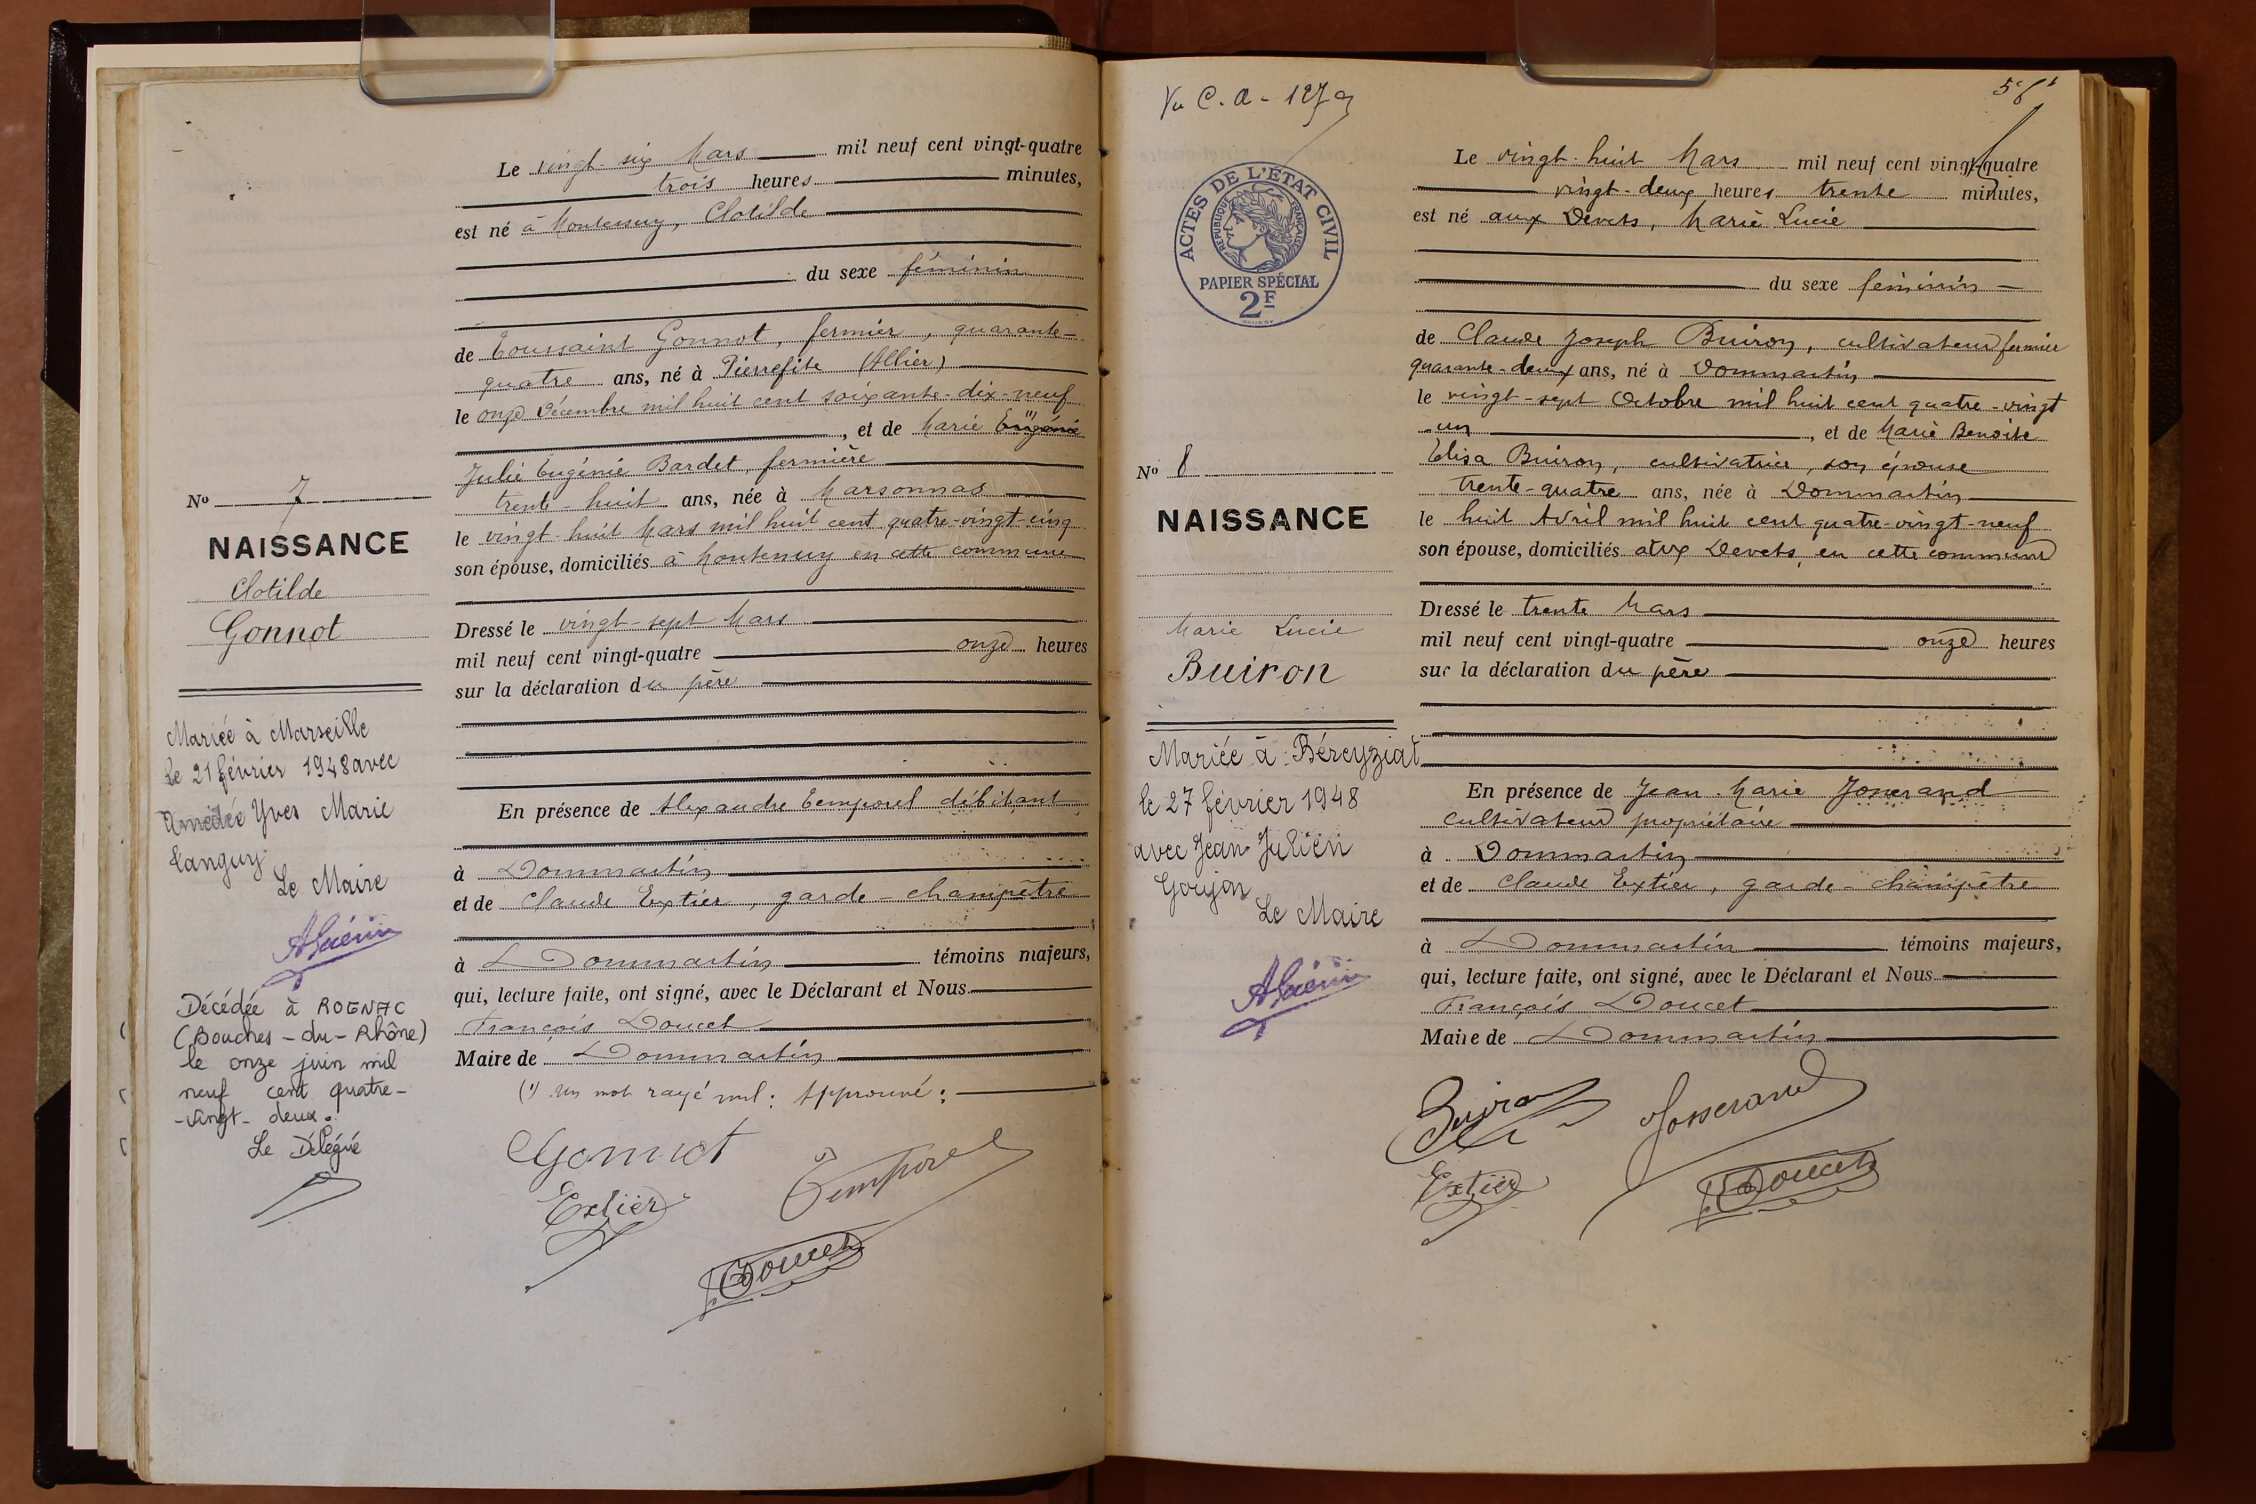 Le vingt-six Mars mil neuf cent vingt-quatre
trois heures minutes,
est né à Montenuy, Clotilde
du sexe féminin
de Toussaint Gonnot, fermier, quarante-
quatre ans, né à Pierrefite (Allier)
le onze Décembre mil huit cent soixante-dix-neuf
, et de Marie Eugénie (1)
Julie Eugénie Bardet, fermière
trente-huit ans, née à Marsonnas
le vingt-huit Mars mil huit cent quatre-vingt-cinq
son épouse, domiciliés à Montenuy en cette commune
Dressé le vingt-sept Mars
mil neuf cent vingt-quatre onze heures
sur la déclaration du père
En présence de Alexandre Temporel débitant
à Dommartin
et de Claude Extier, garde-champêtre
à Dommartin témoins majeurs,
qui, lecture faite, ont signé, avec le Déclarant et Nous
François Doucet
Maire de Dommartin
(1) Un mot rayé nul : Approuvé :
Gonnot
Temporel
Extier
Doucet
No 7
NAISSANCE
Clotilde
Gonnot
Mariée à Marseille
Le 21 février 1948 avec
Amédée Yves Marie
Tanguy
Le Maire
Décédée à ROGNAC
(Bouches-du-Rhône)
le onze juin mil
neuf cent quatre-
-vingt-deux.
Le Délégué
Vu C. A-
ACTES DE L'ÉTAT CIVIL
RÉPUBLIQUE FRANÇAISE
PAPIER SPÉCIAL
2F
No 8
NAISSANCE
Marie Lucie
Buiron
Mariée à Béreyziat
le 27 février 1948
avec Jean Julien
Goujon
Le Maire
Le vingt-huit Mars mil neuf cent vingt-quatre
vingt-deux heures trente minutes,
est né aux Devets, Marie Lucie
du sexe féminin
de Claude Joseph Buiron, cultivateur fermier
quarante-deux ans, né à Dommartin
le vingt-sept Octobre mil huit cent quatre-vingt
-un , et de Marie Benoite
Elisa Buiron, cultivatrice, son épouse
trente-quatre ans, née à Dommartin
le huit Avril mil huit cent quatre-vingt-neuf
son épouse, domiciliés aux Devets, en cette commune
Dressé le trente Mars
mil neuf cent vingt-quatre onze heures
sur la déclaration du père
En présence de Jean-Marie Josserand
cultivateur propriétaire
à Dommartin
et de Claude Extier, garde-champêtre
à Dommartin témoins majeurs,
qui, lecture faite, ont signé, avec le Déclarant et Nous
François Doucet
Maire de Dommartin
Buiron
Josserand
Extier
Doucet